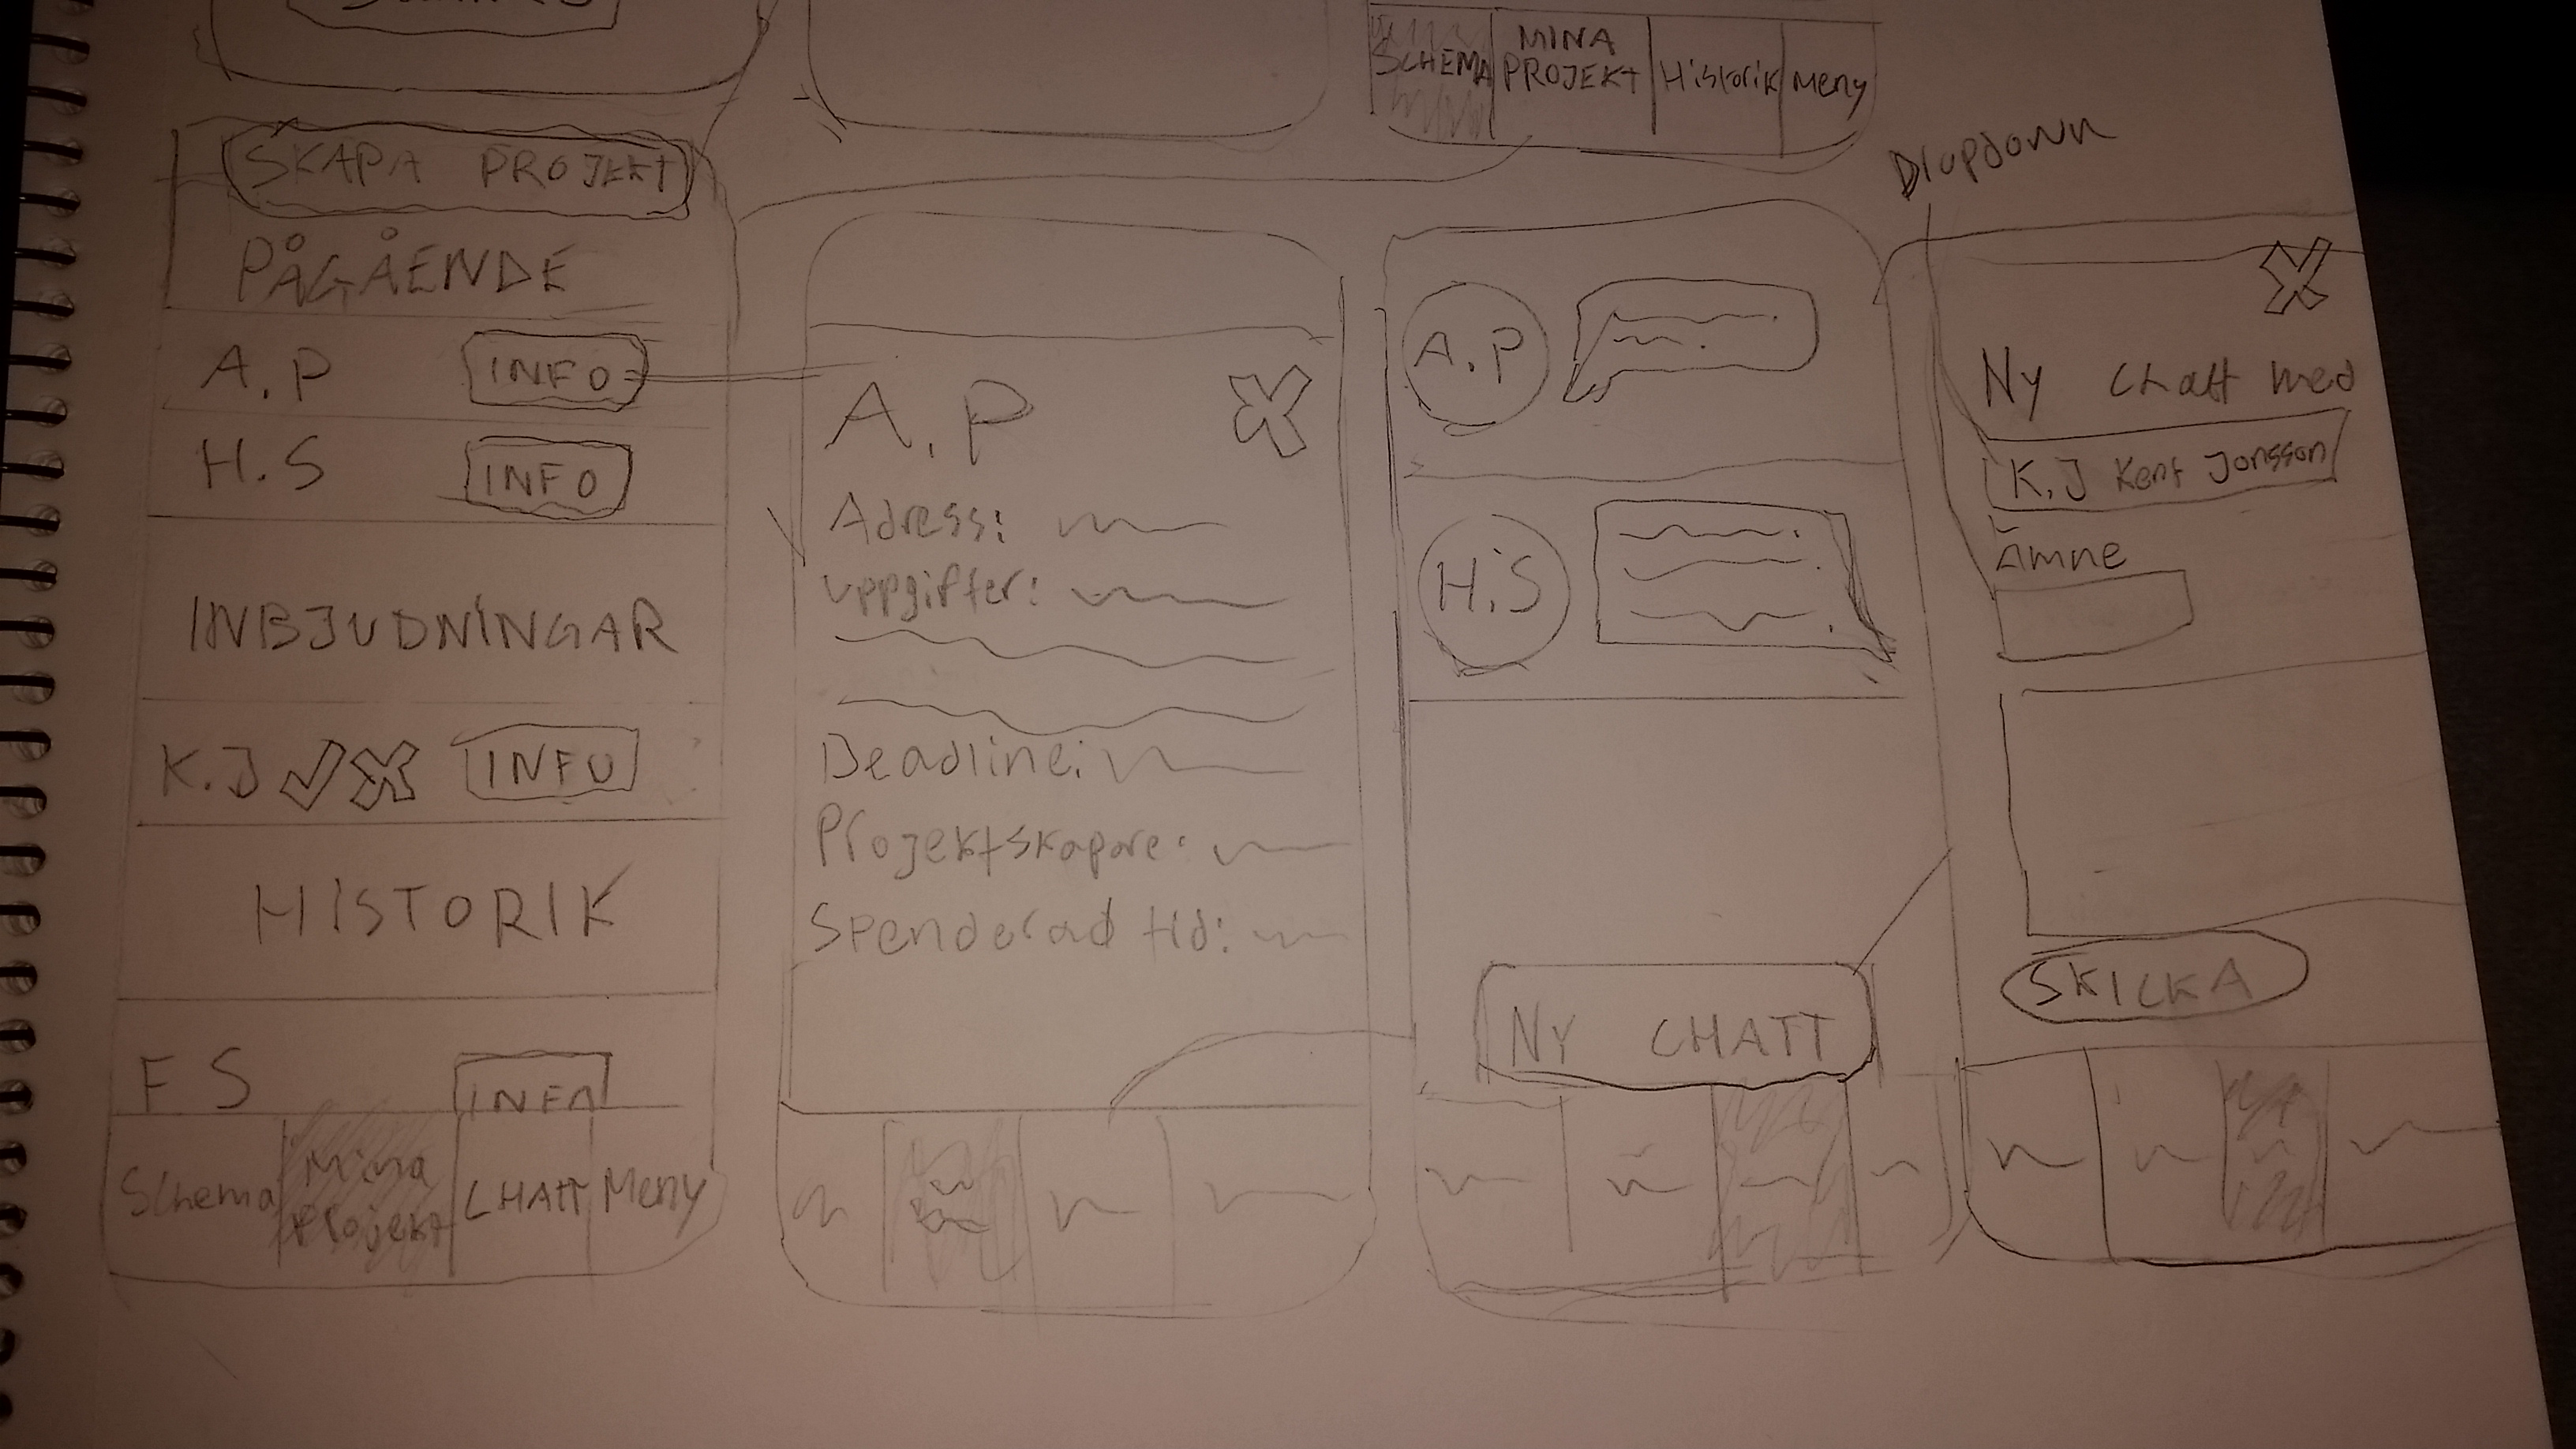 SCHEMA
MINA
PROJEKT
Historik
Meny
SKAPA PROJEKT
PÅGÅENDE
A.P INFO
H.S INFO
INBJUDNINGAR
K.J INFO
HISTORIK
F S INFO
Schema
Mina
Projekt
CHATT
Meny
A.P
Adress:
uppgifter:
Deadline:
Projektskapare:
Spenderad tid:
A.P
H.S
NY CHATT
Dropdown
Ny chatt med
K.J Kent Jonsson
Ämne
SKICKA